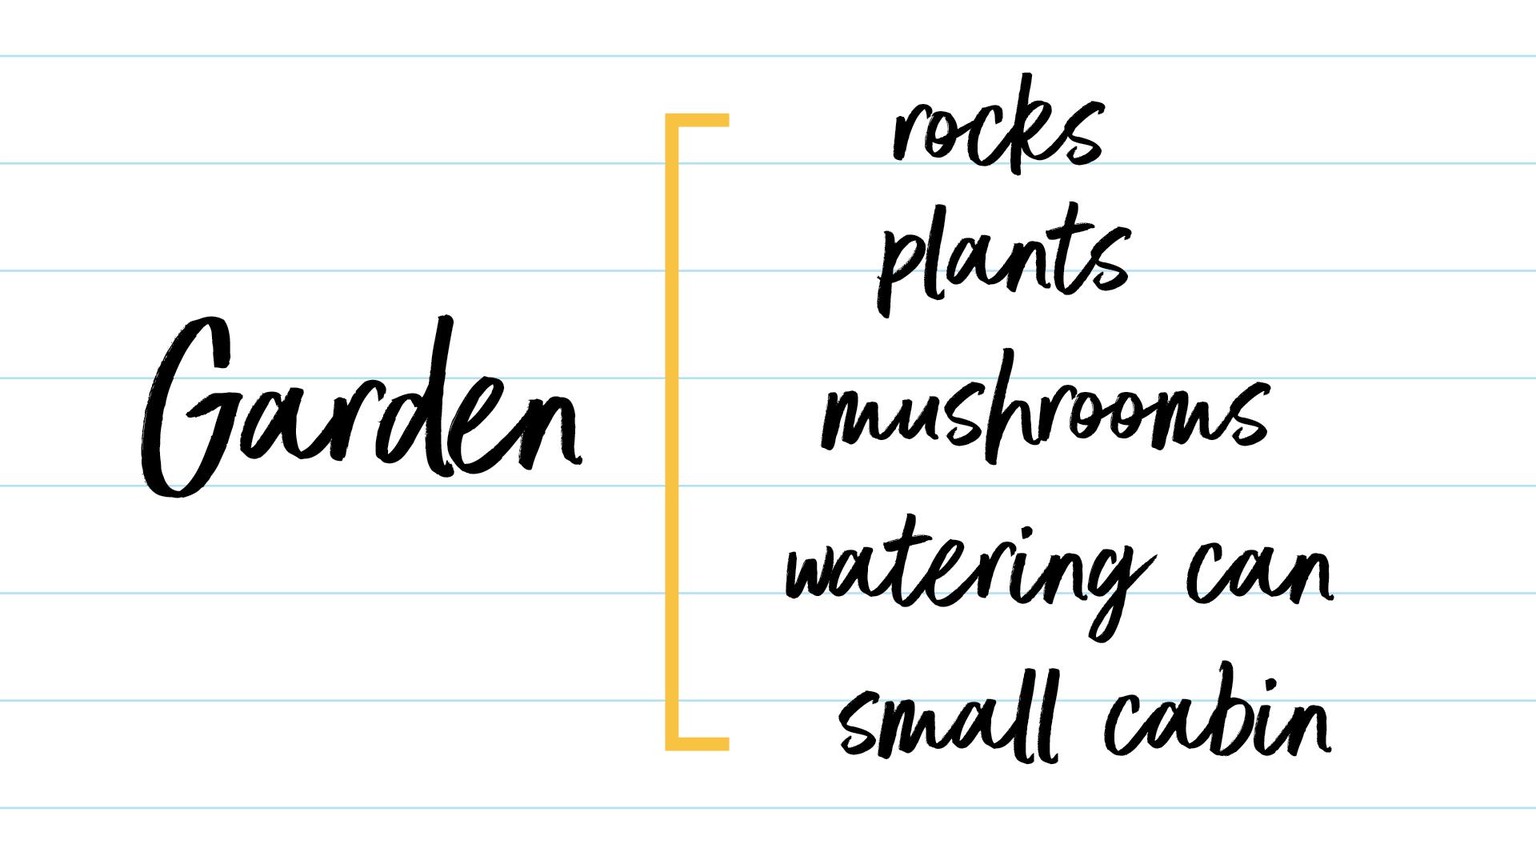 Garden
rocks
plants
mushrooms
watering can
small cabin